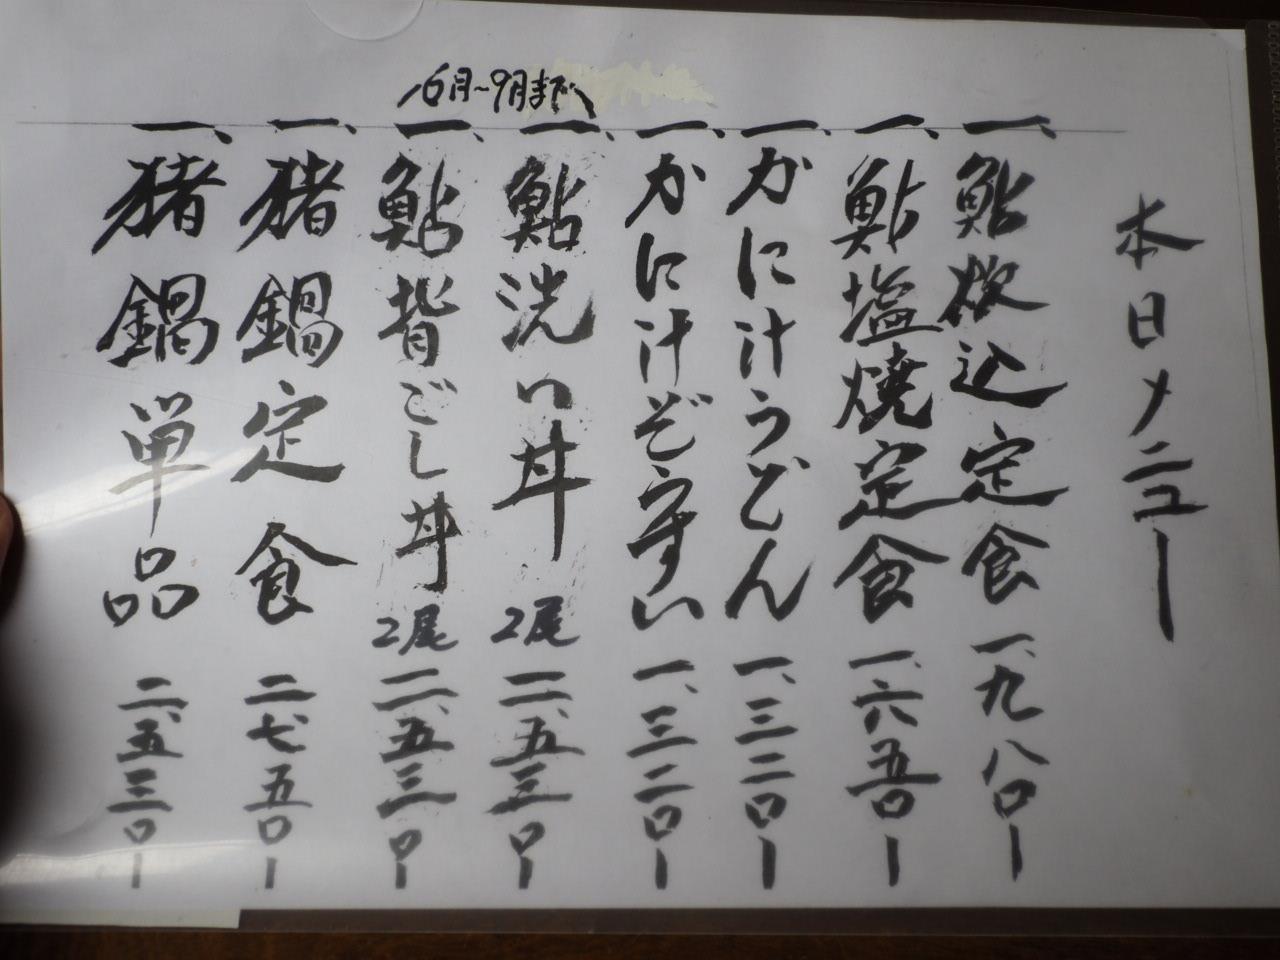 本日メニュー
一、鮎炊込定食 一、九八〇ー
一、鮎塩焼定食 一、六五〇ー
一、かに汁うどん 一、三二〇ー
一、かに汁ぞうすい 一、三二〇ー
(6月~9月まで)
一、鮎洗い丼 2尾 二、五三〇ー
一、鮎背ごし丼 2尾 二、五三〇ー
一、猪鍋定食 二、七五〇ー
一、猪鍋単品 二、五三〇ー